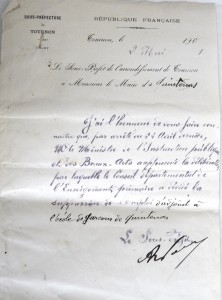 SOUS-PRÉFECTURE
DE
TOURNON
RÉPUBLIQUE FRANÇAISE
Tournon, le 190
Le Sous-Préfet de l'arrondissement de Tournon
à Monsieur le Maire de Quintenas
J'ai l'honneur de vous faire con
naître que, par arrêté du 26 Août dernier,
Mr le Ministre de l'Instruction publique
et des Beaux-Arts a approuvé la délibération
par laquelle le Conseil départemental de
l'Enseignement primaire a décidé la
suppression de l'emploi d'adjoint à
l'école de garçons de Quintenas
Le Sous-Préfet